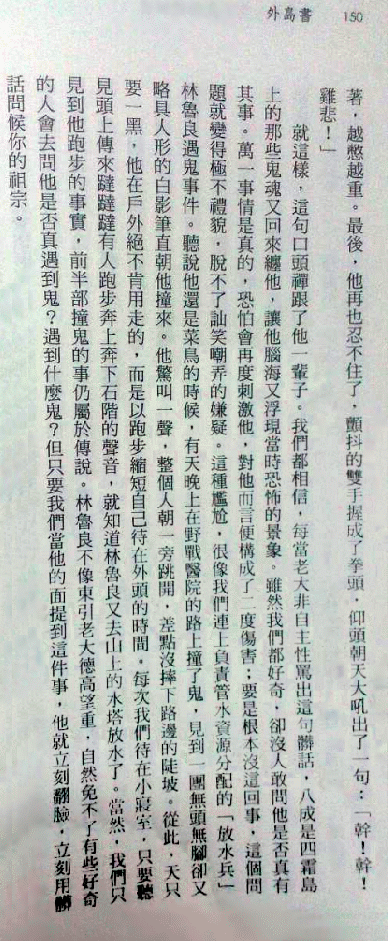 外島書
150
著，越憋越重。最後，他再也忍不住了，顫抖的雙手握成了拳頭，仰頭朝天大吼出了一句：「幹！幹！
雞悲！」
就這樣，這句口頭禪跟了他一輩子。我們都相信，每當老大非自主性罵出這句髒話，八成是四霜島
上的那些鬼魂又回來纏他，讓他腦海又浮現當時恐怖的景象。雖然我們都好奇，卻沒人敢問他是否真有
其事。萬一事情是真的，恐怕會再度刺激他，對他而言便構成了二度傷害；要是根本沒這回事，這個問
題就變得極不禮貌，脫不了訕笑嘲弄的嫌疑。這種尷尬，很像我們連上負責管水資源分配的「放水兵」
林魯良遇鬼事件。聽說他還是菜鳥的時候，有天晚上在野戰醫院的路上撞了鬼，見到一團無頭無腳卻又
略具人形的白影筆直朝他撞來。他驚叫一聲，整個人朝一旁跳開，差點沒摔下路邊的陡坡。從此，天只
要一黑，他在戶外絕不肯用走的，而是以跑步縮短自己待在外頭的時間，每次我們待在小寢室，只要聽
見頭上傳來躂躂躂有人跑步奔上奔下石階的聲音，就知道林魯良又去山上的水塔放水了。當然，我們只
見到他跑步的事實，前半部撞鬼的事仍屬於傳說。林魯良不像東引老大德高望重，自然免不了有些好奇
的人會去問他是否真遇到鬼？遇到什麼鬼？但只要我們當他的面提到這件事，他就立刻翻臉，立刻用髒
話問候你的祖宗。